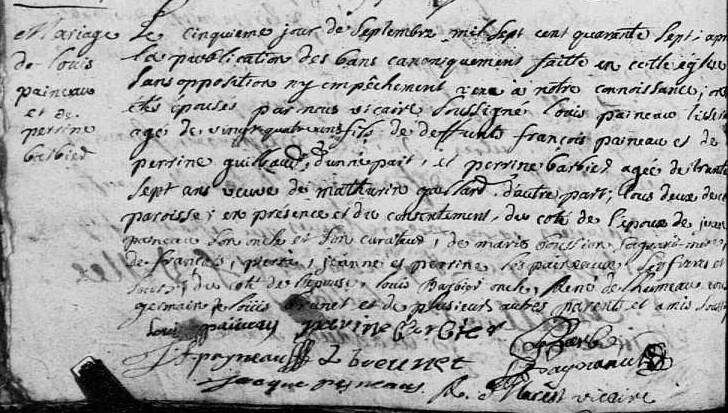 Mariage
de louis
paineau
et de
perrine
barbied
Le cinquieme jour de Septembre mil sept cent quarante Sept, apr
la publication des bans canoniquement faitte en cette eglise
sans opposition ny empêchement venu à notre connoissance, on
étés épousés par nous vicaire soussigné, louis paineau
agé de vingt quatre ans fils de deffunts françois paineau et de
perrine d'unne part, et perrine barbied agée de trante
sept ans veuve de mathurin d'autre part, tous deux de
paroisse; en présence et du consentement, du coté de l'époux de jean
paineau son oncle et son curateur, de marie
de françois, pierre, jeanne et perrine les paineaux, ses freres et
du coté de l'épouse, louis oncle, René
germain, louis brunet et de plusieurs autres parents et amis
Louis painau perrine barbier
payneau L breunet
Jacque
R. vicaire